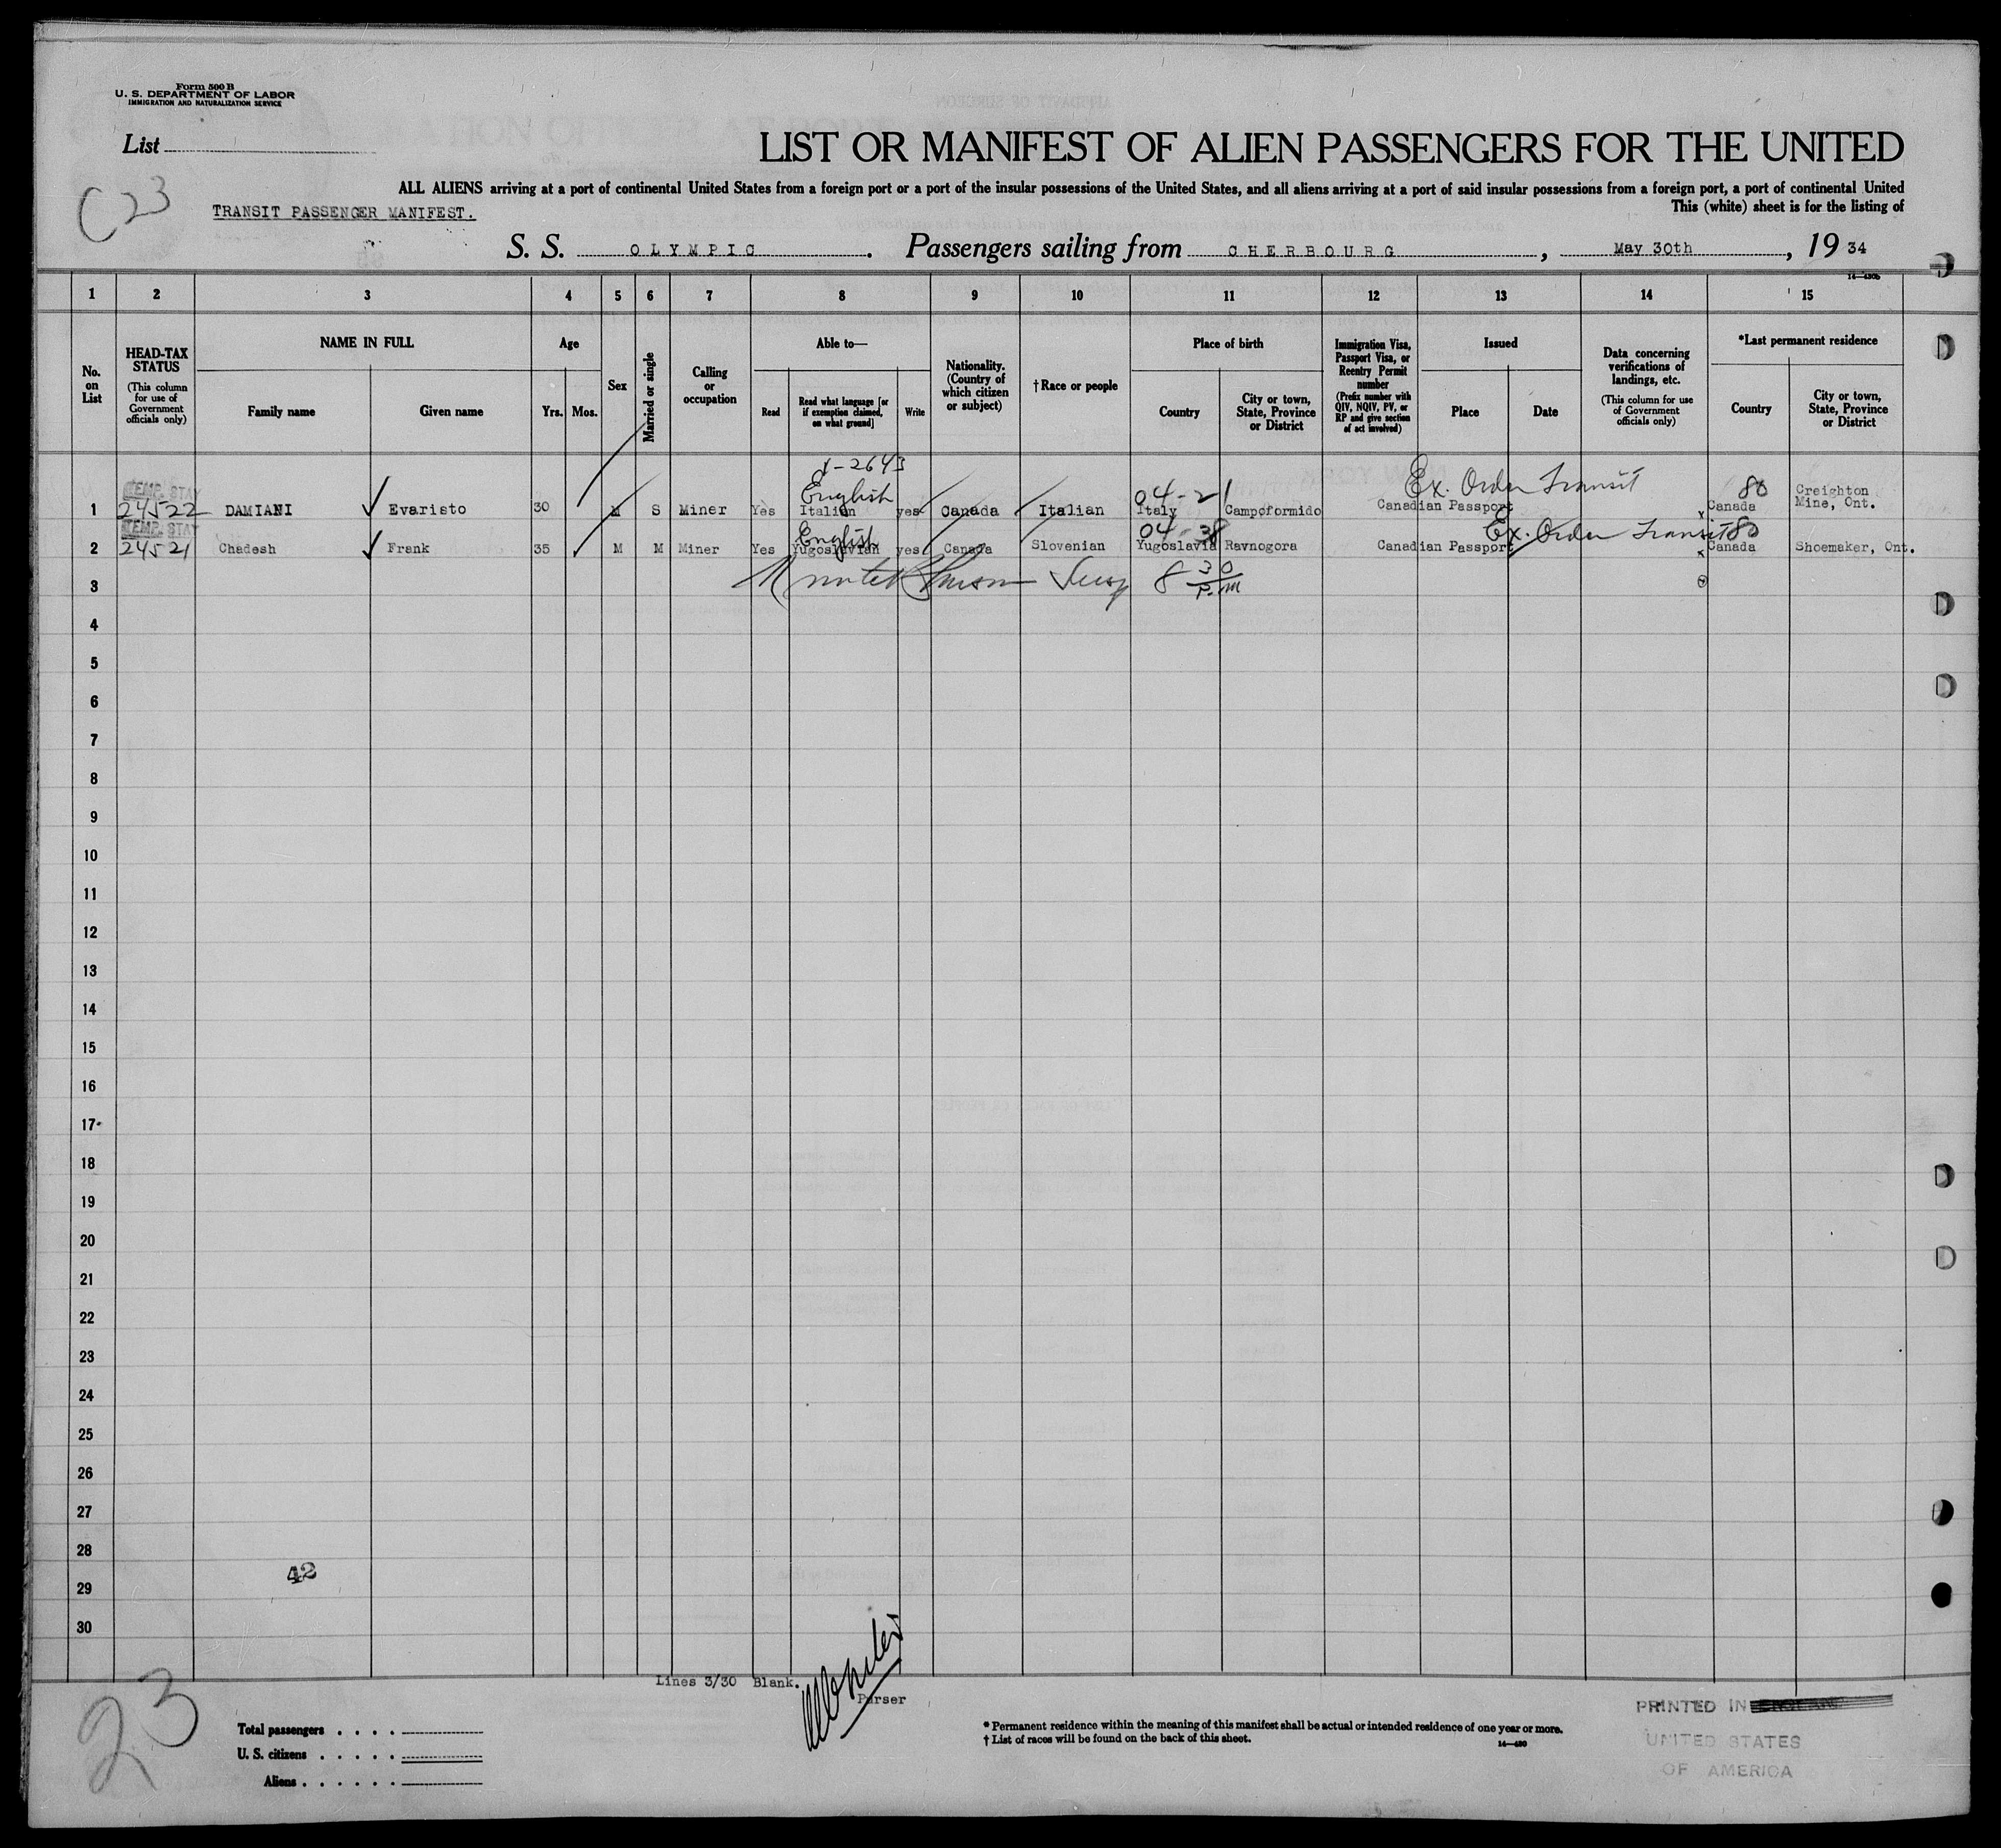 Form 500 B
U. S. DEPARTMENT OF LABOR
IMMIGRATION AND NATURALIZATION SERVICE
List
C 23
LIST OR MANIFEST OF ALIEN PASSENGERS FOR THE UNITED
ALL ALIENS arriving at a port of continental United States from a foreign port or a port of the insular possessions of the United States, and all aliens arriving at a port of said insular possessions from a foreign port, a port of continental United
TRANSIT PASSENGER MANIFEST.
This (white) sheet is for the listing of
S. S. OLYMPIC. Passengers sailing from CHERBOURG, May 30th, 19 34
14—430b
1 2 3 4 5 6 7 8 9 10 11 12 13 14 15
No. on List
HEAD-TAX STATUS (This column for use of Government officials only)
NAME IN FULL
Family name
Given name
Age
Yrs. Mos.
Sex
Married or single
Calling or occupation
Able to—
Read
Read what language [or if exemption claimed, on what ground]
Write
Nationality. (Country of which citizen or subject)
†Race or people
Place of birth
Country
City or town, State, Province or District
Immigration Visa, Passport Visa, or Reentry Permit number (Prefix number with QIV, NQIV, PV, or RP and give section of act involved)
Issued
Place
Date
Data concerning verifications of landings, etc. (This column for use of Government officials only)
*Last permanent residence
Country
City or town, State, Province or District
-2643
TEMP. STAY English 04-21 Ex. Order Transit 80
1 24522 DAMIANI Evaristo 30 M S Miner Yes Italian yes Canada Italian Italy Campoformido Canadian Passport Canada Creighton Mine, Ont.
TEMP. STAY English 04-38 Ex. Order Transit 80
2 24521 Chadesh Frank 35 M M Miner Yes Yugoslavian yes Canada Slovenian Yugoslavia Ravnogora Canadian Passport Canada Shoemaker, Ont.
3 8 30 P.M
4
5
6
7
8
9
10
11
12
13
14
15
16
17
18
19
20
21
22
23
24
25
26
27
28
29
42
30
Lines 3/30 Blank.
Purser
23
Total passengers
U. S. citizens
Aliens
* Permanent residence within the meaning of this manifest shall be actual or intended residence of one year or more.
† List of races will be found on the back of this sheet.
14—430
PRINTED IN
UNITED STATES
OF AMERICA